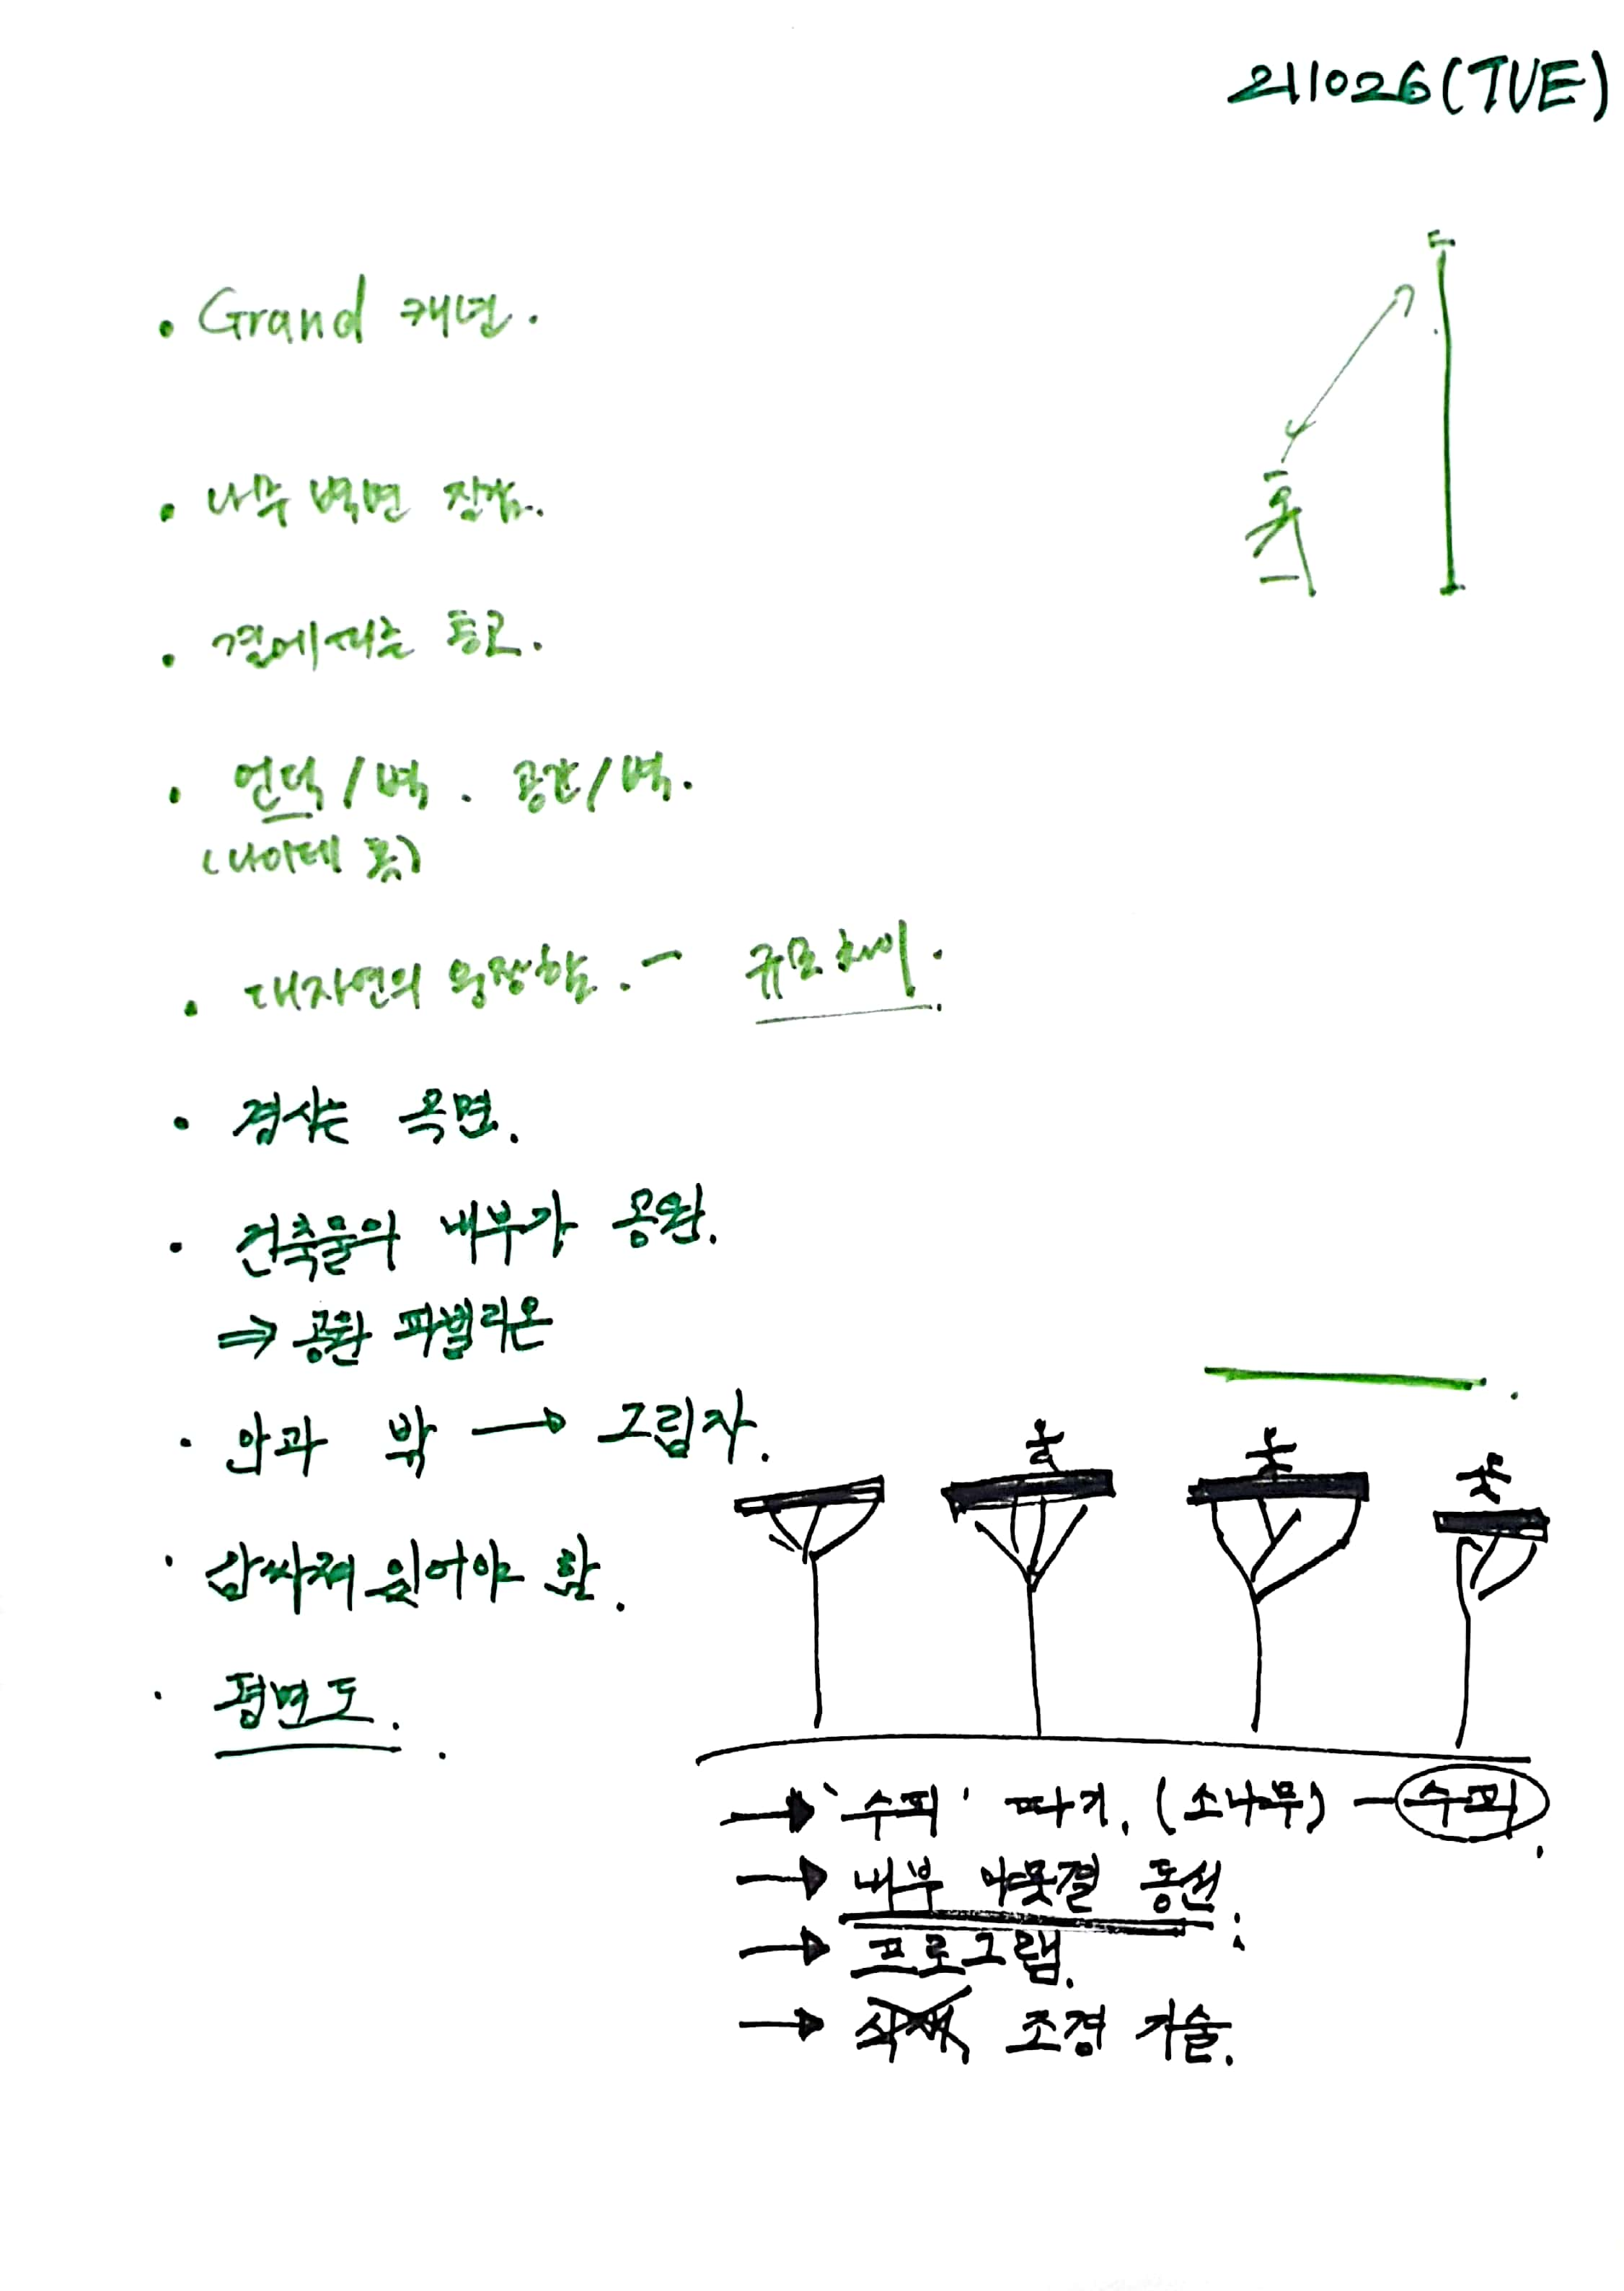 211026(TUE)
· Grand 캐년.
· 나무 벽면 질감.
· 결에서 통로.
· 언덕/벽. 공간/벽.
(나이테 폭)
· 대자연의 웅장함. - 규모 차이.
· 경사는 옥면.
· 건축물의 내부가 공원.
⇒ 공원 파빌리온
· 안과 밖 → 그림자.
· 감싸져 있어야 함.
· 평면도.
→ '수피' 따기. (소나무) - 수피.
→ 내부 나뭇결 동선
→ 프로그램.
→ 식재 조경 기술.